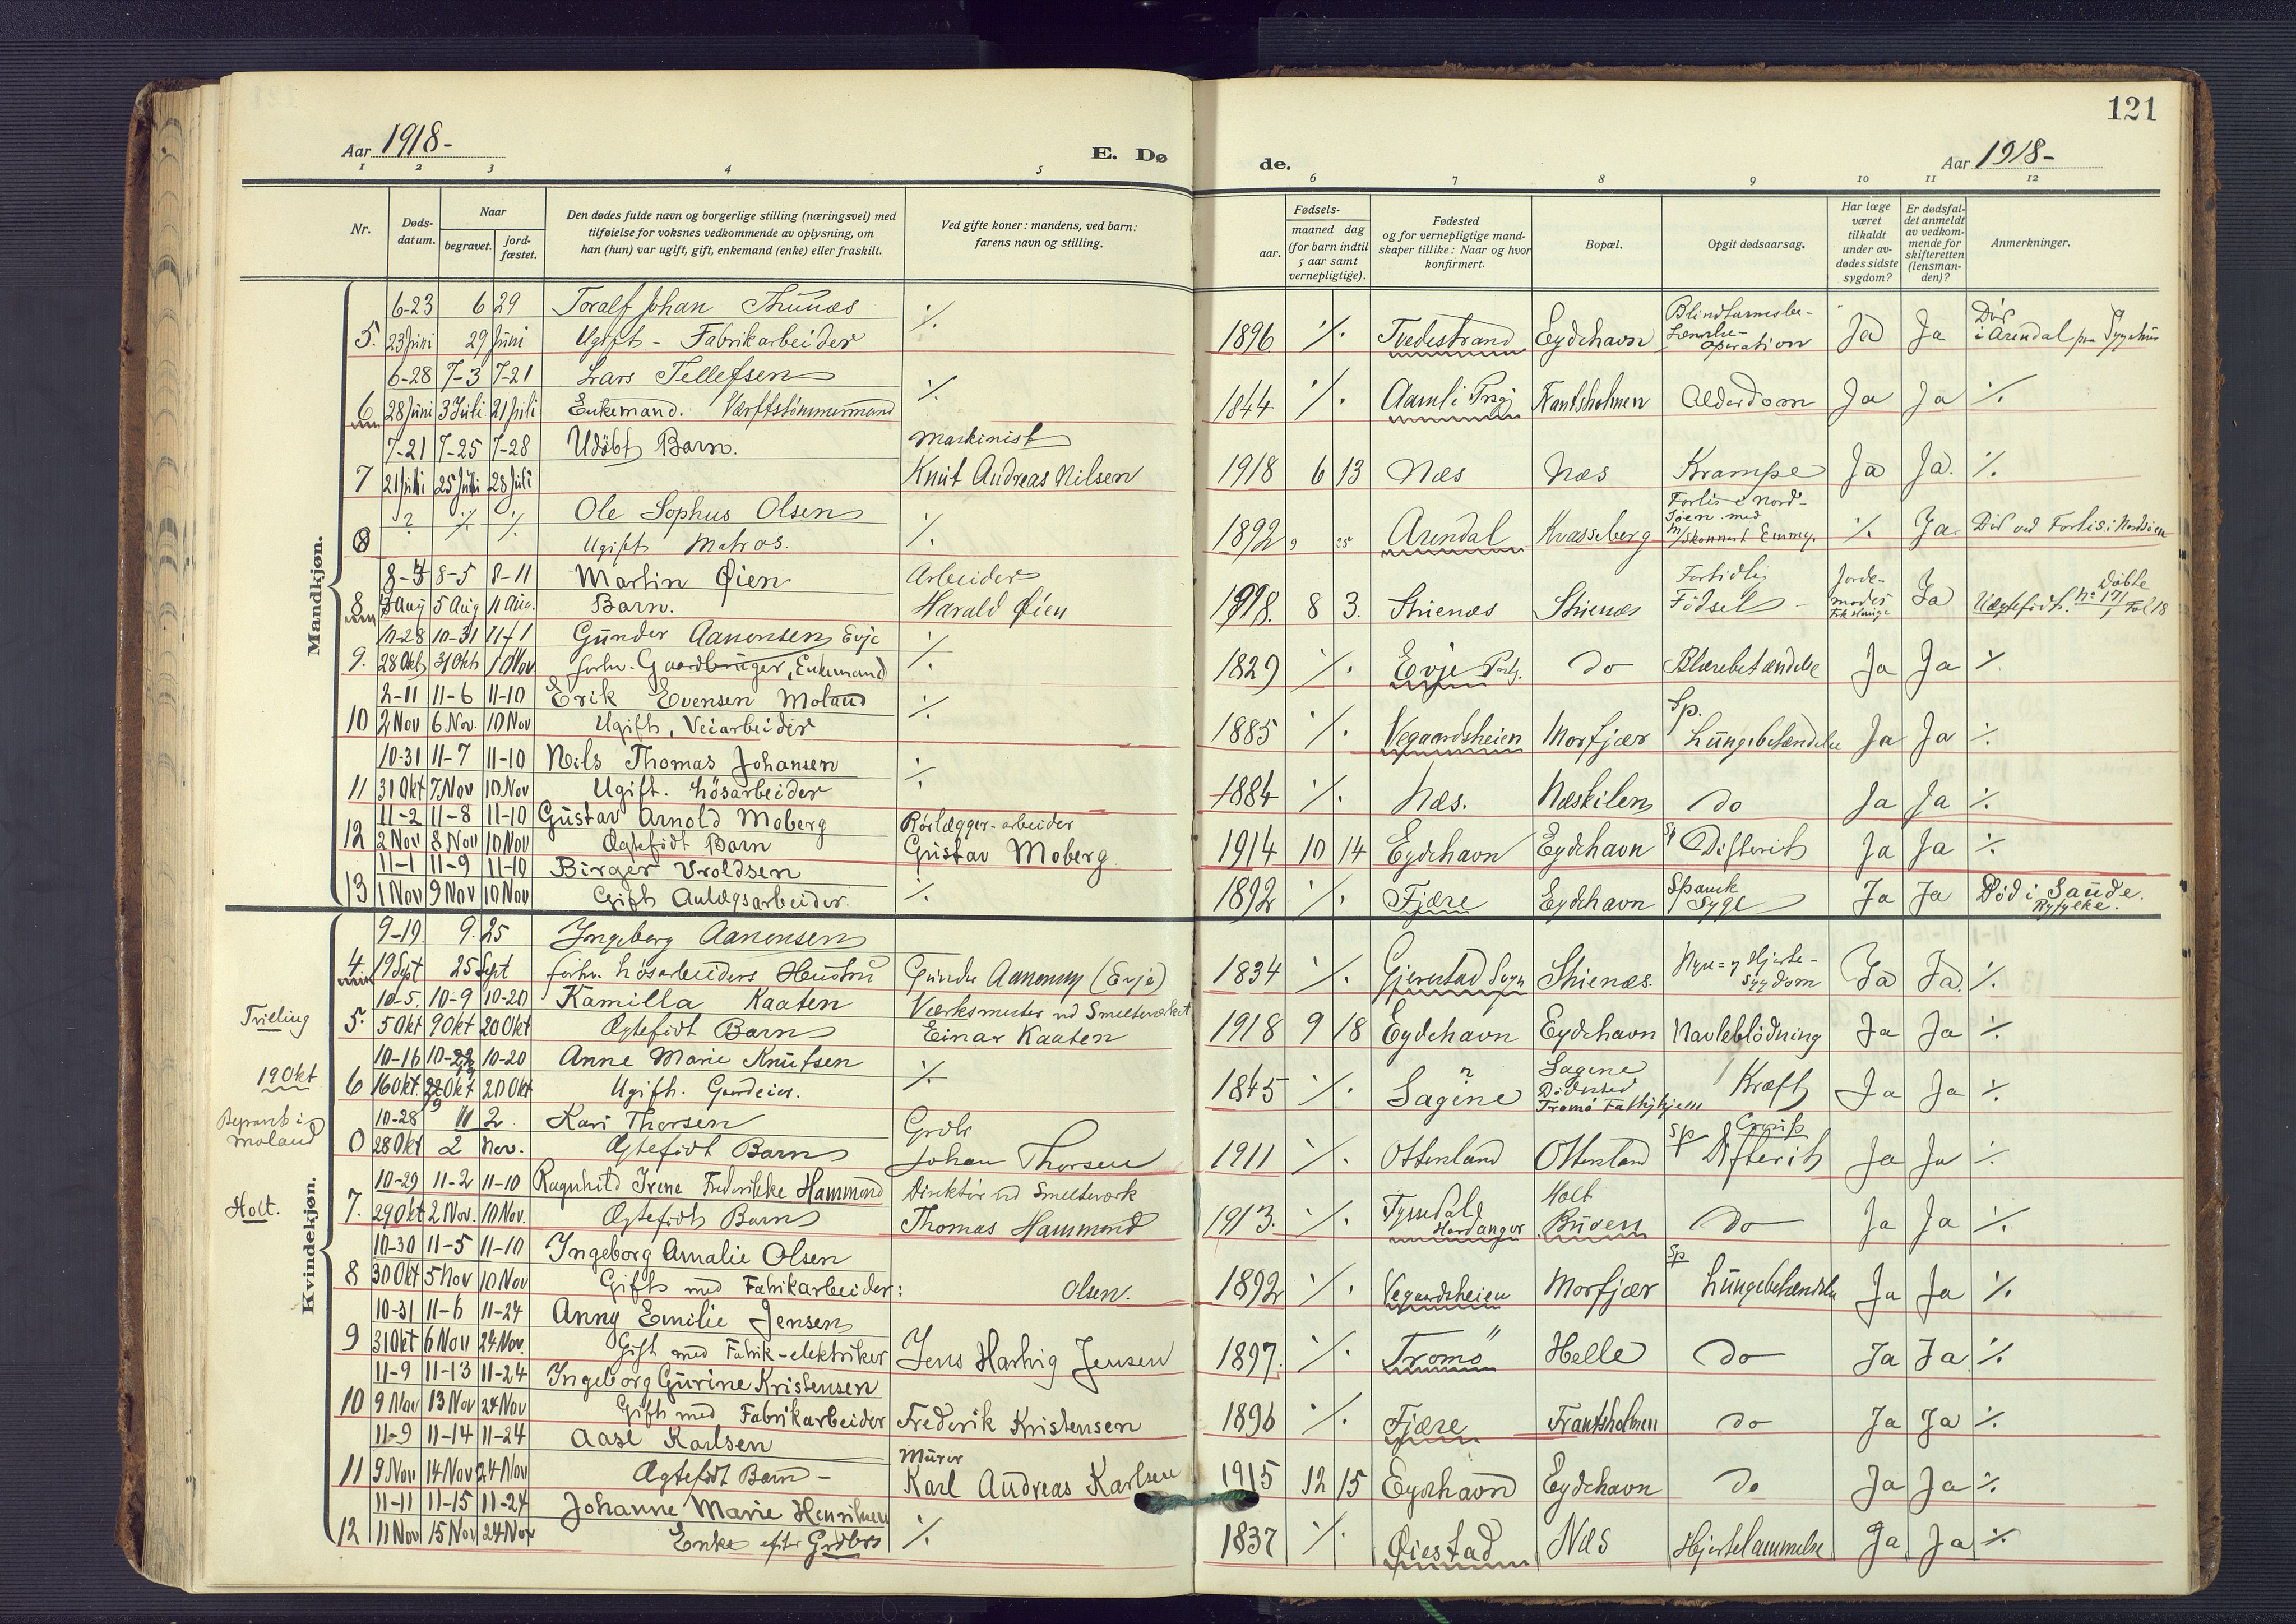 121
Aar 1918-
E. Dø
de.
Aar 1918-
1 2 3 4 5 6 7 8 9 10 11 12
Nr.
Døds-
datum.
Naar
begravet.
jord-
fæstet.
Den dødes fulde navn og borgerlige stilling (næringsvei) med
tilføielse for voksnes vedkommende av oplysning, om
han (hun) var ugift, gift, enkemand (enke) eller fraskilt.
Ved gifte koner: mandens, ved barn:
farens navn og stilling.
Fødsels-
aar.
maaned dag
(for barn indtil
5 aar samt
vernepligtige).
Fødested
og for vernepligtige mand-
skaper tillike: Naar og hvor
konfirmert.
Bopæl.
Opgit dødsaarsag.
Har læge
været
tilkaldt
under av-
dødes sidste
sygdom?
Er dødsfal-
det anmeldt
av vedkom-
mende for
skifteretten
(lensman-
den)?
Anmerkninger.
Mandkjøn.
6-23 6 29 Toralf Johan Thunæs ./.
5. 23 Juni 29 Juni Ugift - Fabrikarbeider
1896 ./. Tvedestrand Eydehavn Blindtarmsbe-
tændelse- Operation Ja Ja Død
i Arendal paa Sygehus
6-28 7-3 7-21 Lars Tellefsen ./.
6 28 Juni 3 Juli 21 Juli Enkemand. Værftstømmermand
1844 ./. Aamli Prgj Frantsholmen Alderdom Ja Ja ./.
7-21 7-25 7-28 Udøbt Barn. Maskinist
7 21 Juli 25 Juli 28 Juli Knut Andreas Nilsen
1918 6 13 Næs Næs Krampe Ja Ja. ./.
? ./. ./. Ole Sophus Olsen ./.
0 Ugift Matros.
1892 9 25 Arendal Kvasseberg Forlis i Nord-
sjøen med
M/Skonnert Emmy. ./. Ja. Død ved Forlis i Nordsjøen
8-3 8-5 8-11 Martin Øien Arbeider
8 3 Aug 5 Aug 11 Aug. Barn. Harald Øien
1918. 8 3. Strenæs Strenæs Fortidlig
Fødsel - Jorde-
moder Ja Uægtefødt. Døbte
No 17/1 Fol 18
10-28 10-31 11-1 Gunder Aanonsen Evje ./.
9. 28 Okt 31 Okt 1 Nov forhv. Gaardbruger, Enkemand
1829 ./. Evje Prstj. do Blærebetændelse Ja Ja ./.
2-11 11-6 11-10 Erik Evensen Moland ./.
10 2 Nov 6 Nov. 10 Nov Ugift, Veiarbeider
1885 ./. Vegaardsheien Morfjær Sp.
Lungebetændelse Ja Ja ./.
10-31 11-7 11-10 Nils Thomas Johansen ./.
11 31 Okt 7 Nov 10 Nov Ugift. Løsarbeider
1884 ./. Næs. Næskilen do Ja Ja ./.
11-2 11-8 11-10 Gustav Arnold Moberg Rørlægger-arbeider
12 2 Nov 8 Nov 10 Nov Ægtefødt Barn Gustav Moberg
1914 10 14 Eydehavn Eydehavn Sp Difterit Ja Ja ./.
11-1 11-9 11-10 Birger Vroldsen ./.
13 1 Nov 9 Nov 10 Nov Gift Anlægsarbeider.
1892 ./. Fjære Eydehavn Spansk
Syge Ja Ja Død i Saude.
Ryfylke.
Kvindekjøn.
9-19 9. 25 Ingeborg Aanonsen
4 19 Sept 25 Sept forhv. Løsarbeiders Hustru Gunder Aanonsen (Evje)
1834 ./. Gjerestad Sogn Strenæs. Nyre= og Hjerte-
sygdom Ja Ja ./.
Tvilling
10-5. 10-9 10-20 Kamilla Kaaten Værksmester ved Smelteverket
5. 5 Okt 9 Okt 20 Okt Ægtefødt Barn Einar Kaaten
1918 9 18 Eydehavn Eydehavn Navleblødning Ja Ja ./.
19 Okt
10-16 10-22 10-20 Anne Marie Knutsen ./.
6 16 Okt. 22 Okt 20 Okt Ugift. Gaardeier.
1845 ./. Sagene Sagene
Dødssted
Tromø Fattighjem Kræft Ja Ja ./.
Begravet i
Moland
10-28 11 2 Kari Thorsen Grdbr
0 28 Okt 2 Nov. Ægtefødt Barn Johan Thorsen
1911 ./. Ottersland Ottersland Sp Croup
Difterit Ja Ja ./.
Holt.
10-29 11-2 11-10 Ragnhild Irene Frederikke Hammond Direktør ved Smelteverk
7. 29 Okt 2 Nov. 10 Nov. Ægtefødt Barn Thomas Hammond
1913. ./. Tyssedal
Hardanger Holt
Buven do Ja Ja ./.
10-30 11-5 11-10 Ingeborg Amalie Olsen
8 30 Okt 5 Nov 10 Nov Gift med Fabrikarbeider: Olsen.
1892 ./. Vegaardsheien Morfjær Sp Lungebetændelse Ja Ja ./.
10-31 11-6 11-24 Anny Emilie Jensen
9 31 Okt 6 Nov 24 Nov. Gift med Fabrik-elektriker Jens Hartvig Jensen
1897. ./. Tromø Helle do Ja Ja ./.
11-9 11-13 11-24 Ingeborg Gurine Kristensen
10 9 Nov 13 Nov 24 Nov Gift med Fabrikarbeider Frederik Kristensen
1896 ./. Fjære Frantsholmen do Ja Ja ./.
11-9 11-14 11-24 Aase Karlsen Murer
11 9 Nov 14 Nov 24 Nov Ægtefødt Barn - Karl Andreas Karlsen
1915 12 15 Eydehavn Eydehavn do Ja Ja ./.
11-11 11-15 11-24 Johanne Marie Henriksen ./.
12 11 Nov 15 Nov 24 Nov Enke efter Grdbrs
1837 ./. Øiestad Næs Hjertelammelse Ja Ja ./.